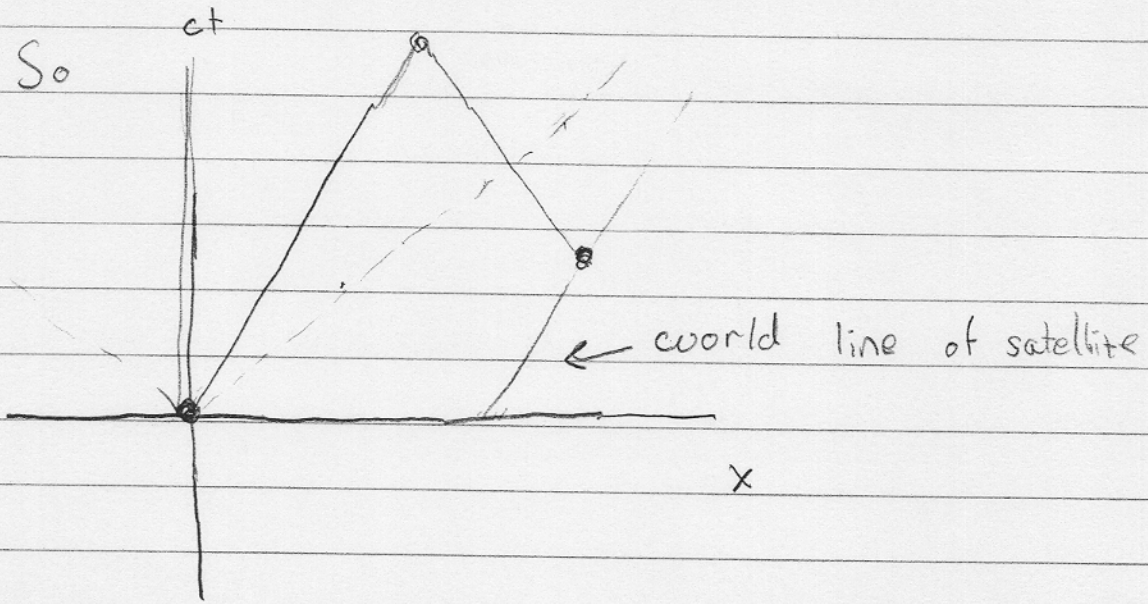 ct
So
world line of satellite
x